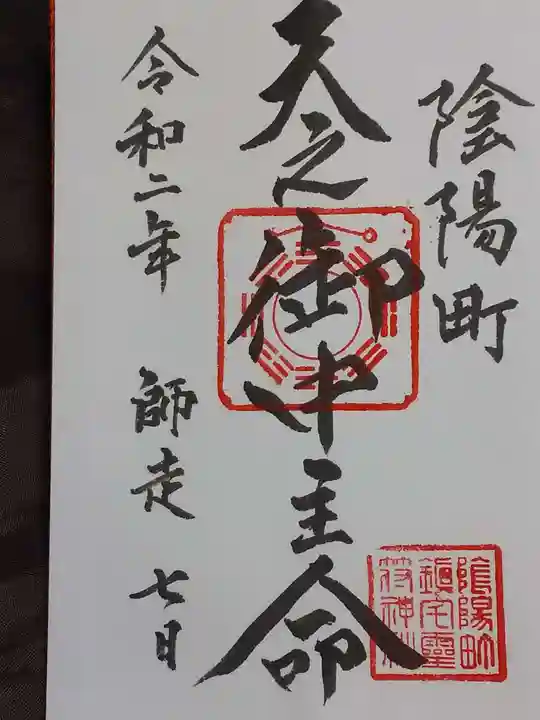 陰陽町
天之御中主命
令和二年 師走 七日
陰陽町
鎮宅霊
符神社